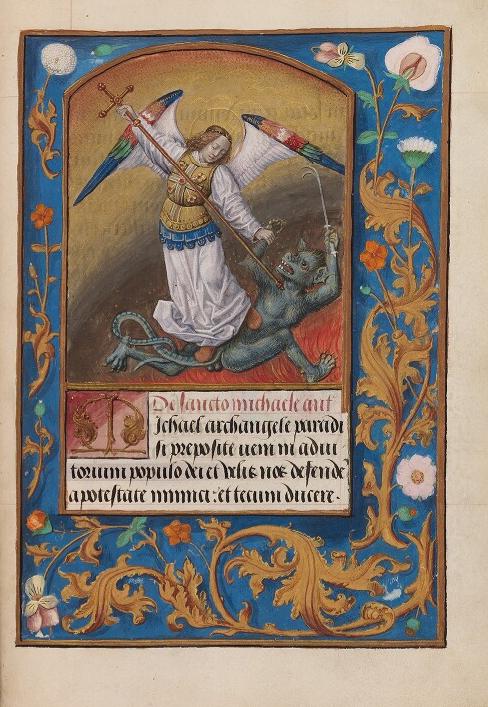 De sancto michaele ant
Michael archangele paradi
si preposite veni in adiu
torium populo dei et velis nos defende
a potestate inimici : et tecum ducere .